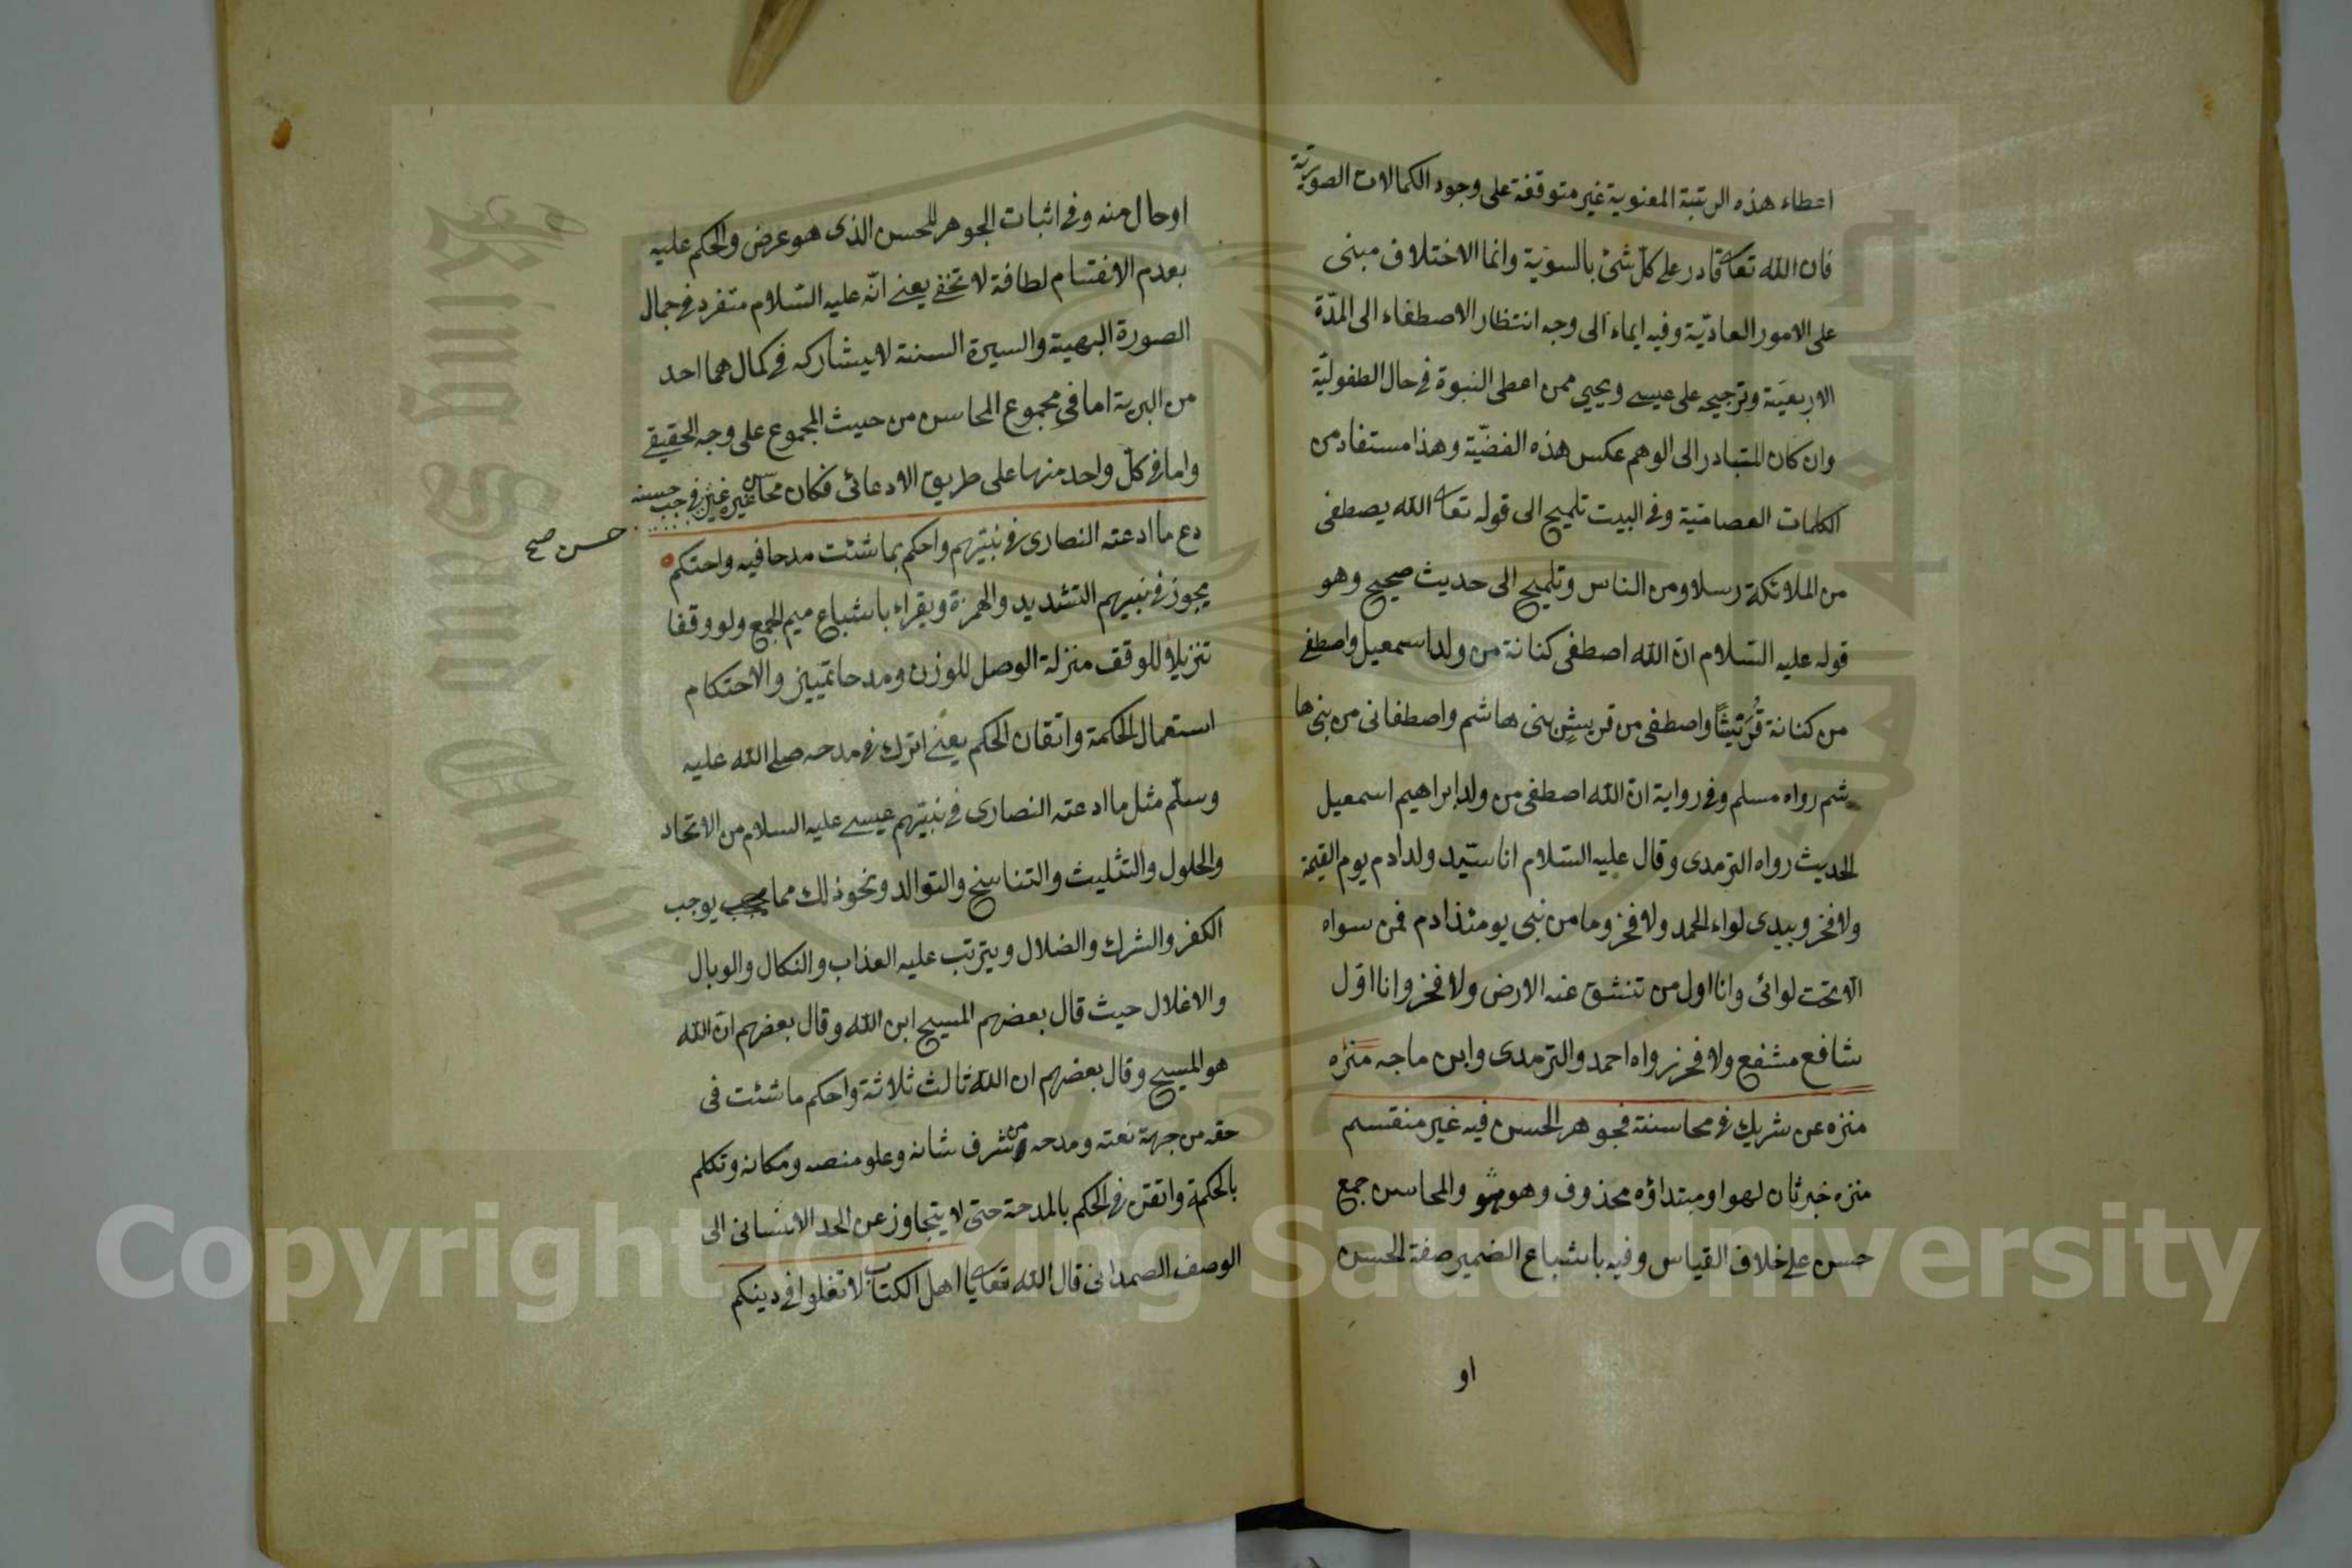 اعطاء هذه الرتبة المعنوية غير متوقفة على وجود الكمالات الصورية
فان الله تعا قادر على كلّ شئ بالسوّية وانما الاختلاف مبنى
على الامور العاديّة وفيه ايماء الى وجه انتظار الاصطفاء الى المدّة
الاربعيَنة وترجيحه على عيسى ويحيى ممن اعطى النبوة فى حال الطفوليّة
وان كان المتبادر الى الوهم عكس هذه القضّية وهذا مستفاد من
الكلمات العصامية وفى البيت تلميح الى قوله تعا الله يصطفى
من الملائكة رسلا ومن الناس وتلميح الى حديث صحيح وهو
قوله عليه السّلام ان الله اصطفى كنانة من ولد اسمعيل واصطفى
من كنانة قُرَيْشًا واصطفى من قريشٍ بنى هاشم واصطفانى من بنى ها
شم رواه مسلم وفى رواية ان الله اصطفى من ولد ابراهيم اسمعيل
الحديث رواه الترمدى وقال عليه السّلام انا سيّد ولد ادم يوم القيمة
ولا فخر وبيدى لواء الحمد ولا فخر وما من نبى يومئذ ادم فمن سواه
الّا تحت لوائى وانا اول من تنشق عنه الارض ولا فخر وانا اوّل
شافع مشفع ولا فخر رواه احمد والترمدى وابن ماجه منزه
منزه عن شريك فى محاسنه فجوهر الحسن فيه غير منقسم
منزه خبر ثان لهو او مبتداؤه محذوف وهو هو والمحاسن جمع
حسن على خلاف القياس وفيه باشباع الضمير صفة الحسن
او
او حال منه وفى اثبات الجوهر للحسن الذى هو عرض والحكم عليه
بعدم الانقسام لطافة لا تخفى يعنى انّه عليه السّلام متفرد فى جمال
الصورة البهية والسيرة السنية لا يشاركه فى كمال هما احد
من البرية اما فى مجموع المحاسن من حيث المجموع على وجه الحقيقى
واما فى كلّ واحد منها على طريق الادعائى فكان محاسن غيره فى جنب حسنه
حسن صح
دع ما ادعته النصارى فى نبيّهم واحكم بما شئت مدحا فيه واحتكم
يجوز فى نبيهم التشديد والهمزة ويقراء باشباع ميم الجمع ولو وقفا
تنزيلا للوقف منزلة الوصل للوزن ومدحا تمييز والاحتكام
استعمال الحكمة واتقان الحكم يعنى اترك فى مدحه صلى الله عليه
وسلّم مثل ما ادعته النصارى فى نبيّهم عيسى عليه السلام من الاتحاد
والحلول والتثليث والتناسخ والتوالد ونحو ذلك مما يوجب
الكفر والشرك والضلال ويترتب عليه العذاب والنكال والوبال
والاغلال حيث قال بعضهم المسيح ابن الله وقال بعضهم ان الله
هو المسيح وقال بعضهم ان الله ثالث ثلاثة واحكم ما شئت فى
حقه من جهة نعته ومدحه من شرف شانه وعلو منصبه ومكانه وتكلم
بالحكمة واتقن فى الحكم بالمدحة حتى لا يتجاوز عن الحد الانسانى الى
الوصف الصمدانى قال الله تعا يا اهل الكتاب لا تغلوا فى دينكم
Copyright © King Saud University
1957